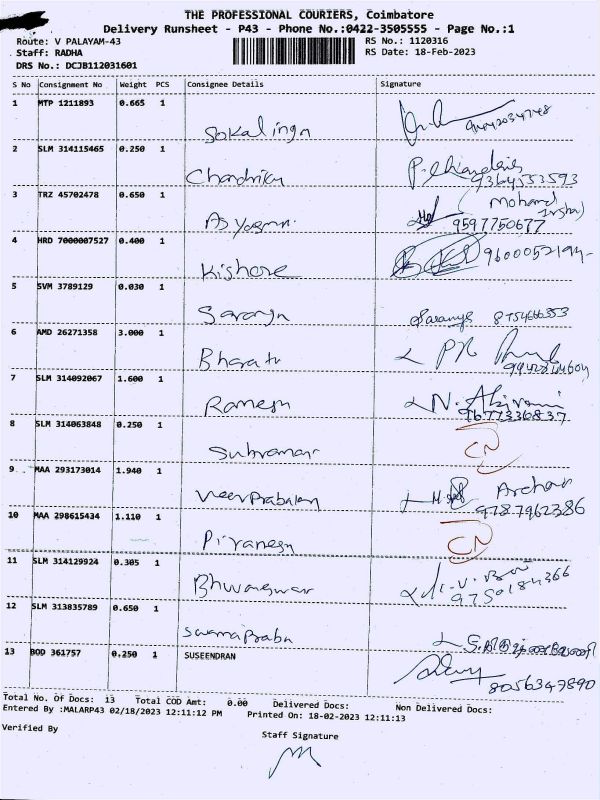 THE PROFESSIONAL COURIERS, Coimbatore
Delivery Runsheet - P43 - Phone No.:0422-3505555 - Page No.:1
Route: V PALAYAM-43 RS No.: 1120316
Staff: RADHA RS Date: 18-Feb-2023
DRS No.: DCJB112031601
S No Consignment No Weight PCS Consignee Details Signature
1 MTP 1211893 0.665 1
Sokalinga
2 SLM 314115465 0.250 1
Chandrika 9364553593
3 TRZ 45702478 0.650 1 Mohamd
9597750677
4 HRD 7000007527 0.400 1
Kishore
5 SVM 3789129 0.030 1
Saranya Saranya
6 AMD 26271358 3.000 1
Bharath
7 SLM 314092067 1.600 1
Ramesh N. Abirami
9677336837
8 SLM 314063848 0.250 1 CN
9 MAA 293173014 1.940 1
Veerprabakan
9787962386
10 MAA 298615434 1.110 1 CN
11 SLM 314129924 0.305 1
9750184366
12 SLM 313835789 0.650 1
13 BOD 361757 0.250 1 SUSEENDRAN
8056347890
Total No. Of Docs: 13 Total COD Amt: 0.00 Delivered Docs: Non Delivered Docs:
Entered By :MALARP43 02/18/2023 12:11:12 PM Printed On: 18-02-2023 12:11:13
Verified By
Staff Signature